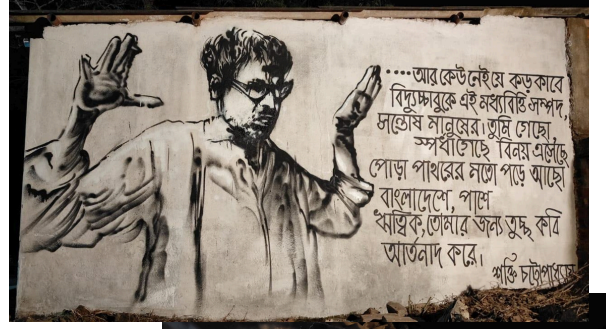 ....আর কেউ নেই যে কড়কাবে
বিদ্যুচ্চাবুকে এই মধ্যবিত্তি সম্পদ,
সন্তোষ মানুষের। তুমি গেছো,
স্পর্ধা গেছে বিনয় এসেছে
পোড়া পাথরের মতো পড়ে আছো
বাংলাদেশে, পাশে
ঋত্বিক, তোমার জন্য তুচ্ছ কবি
আর্তনাদ করে।
শক্তি চট্টোপাধ্যায়